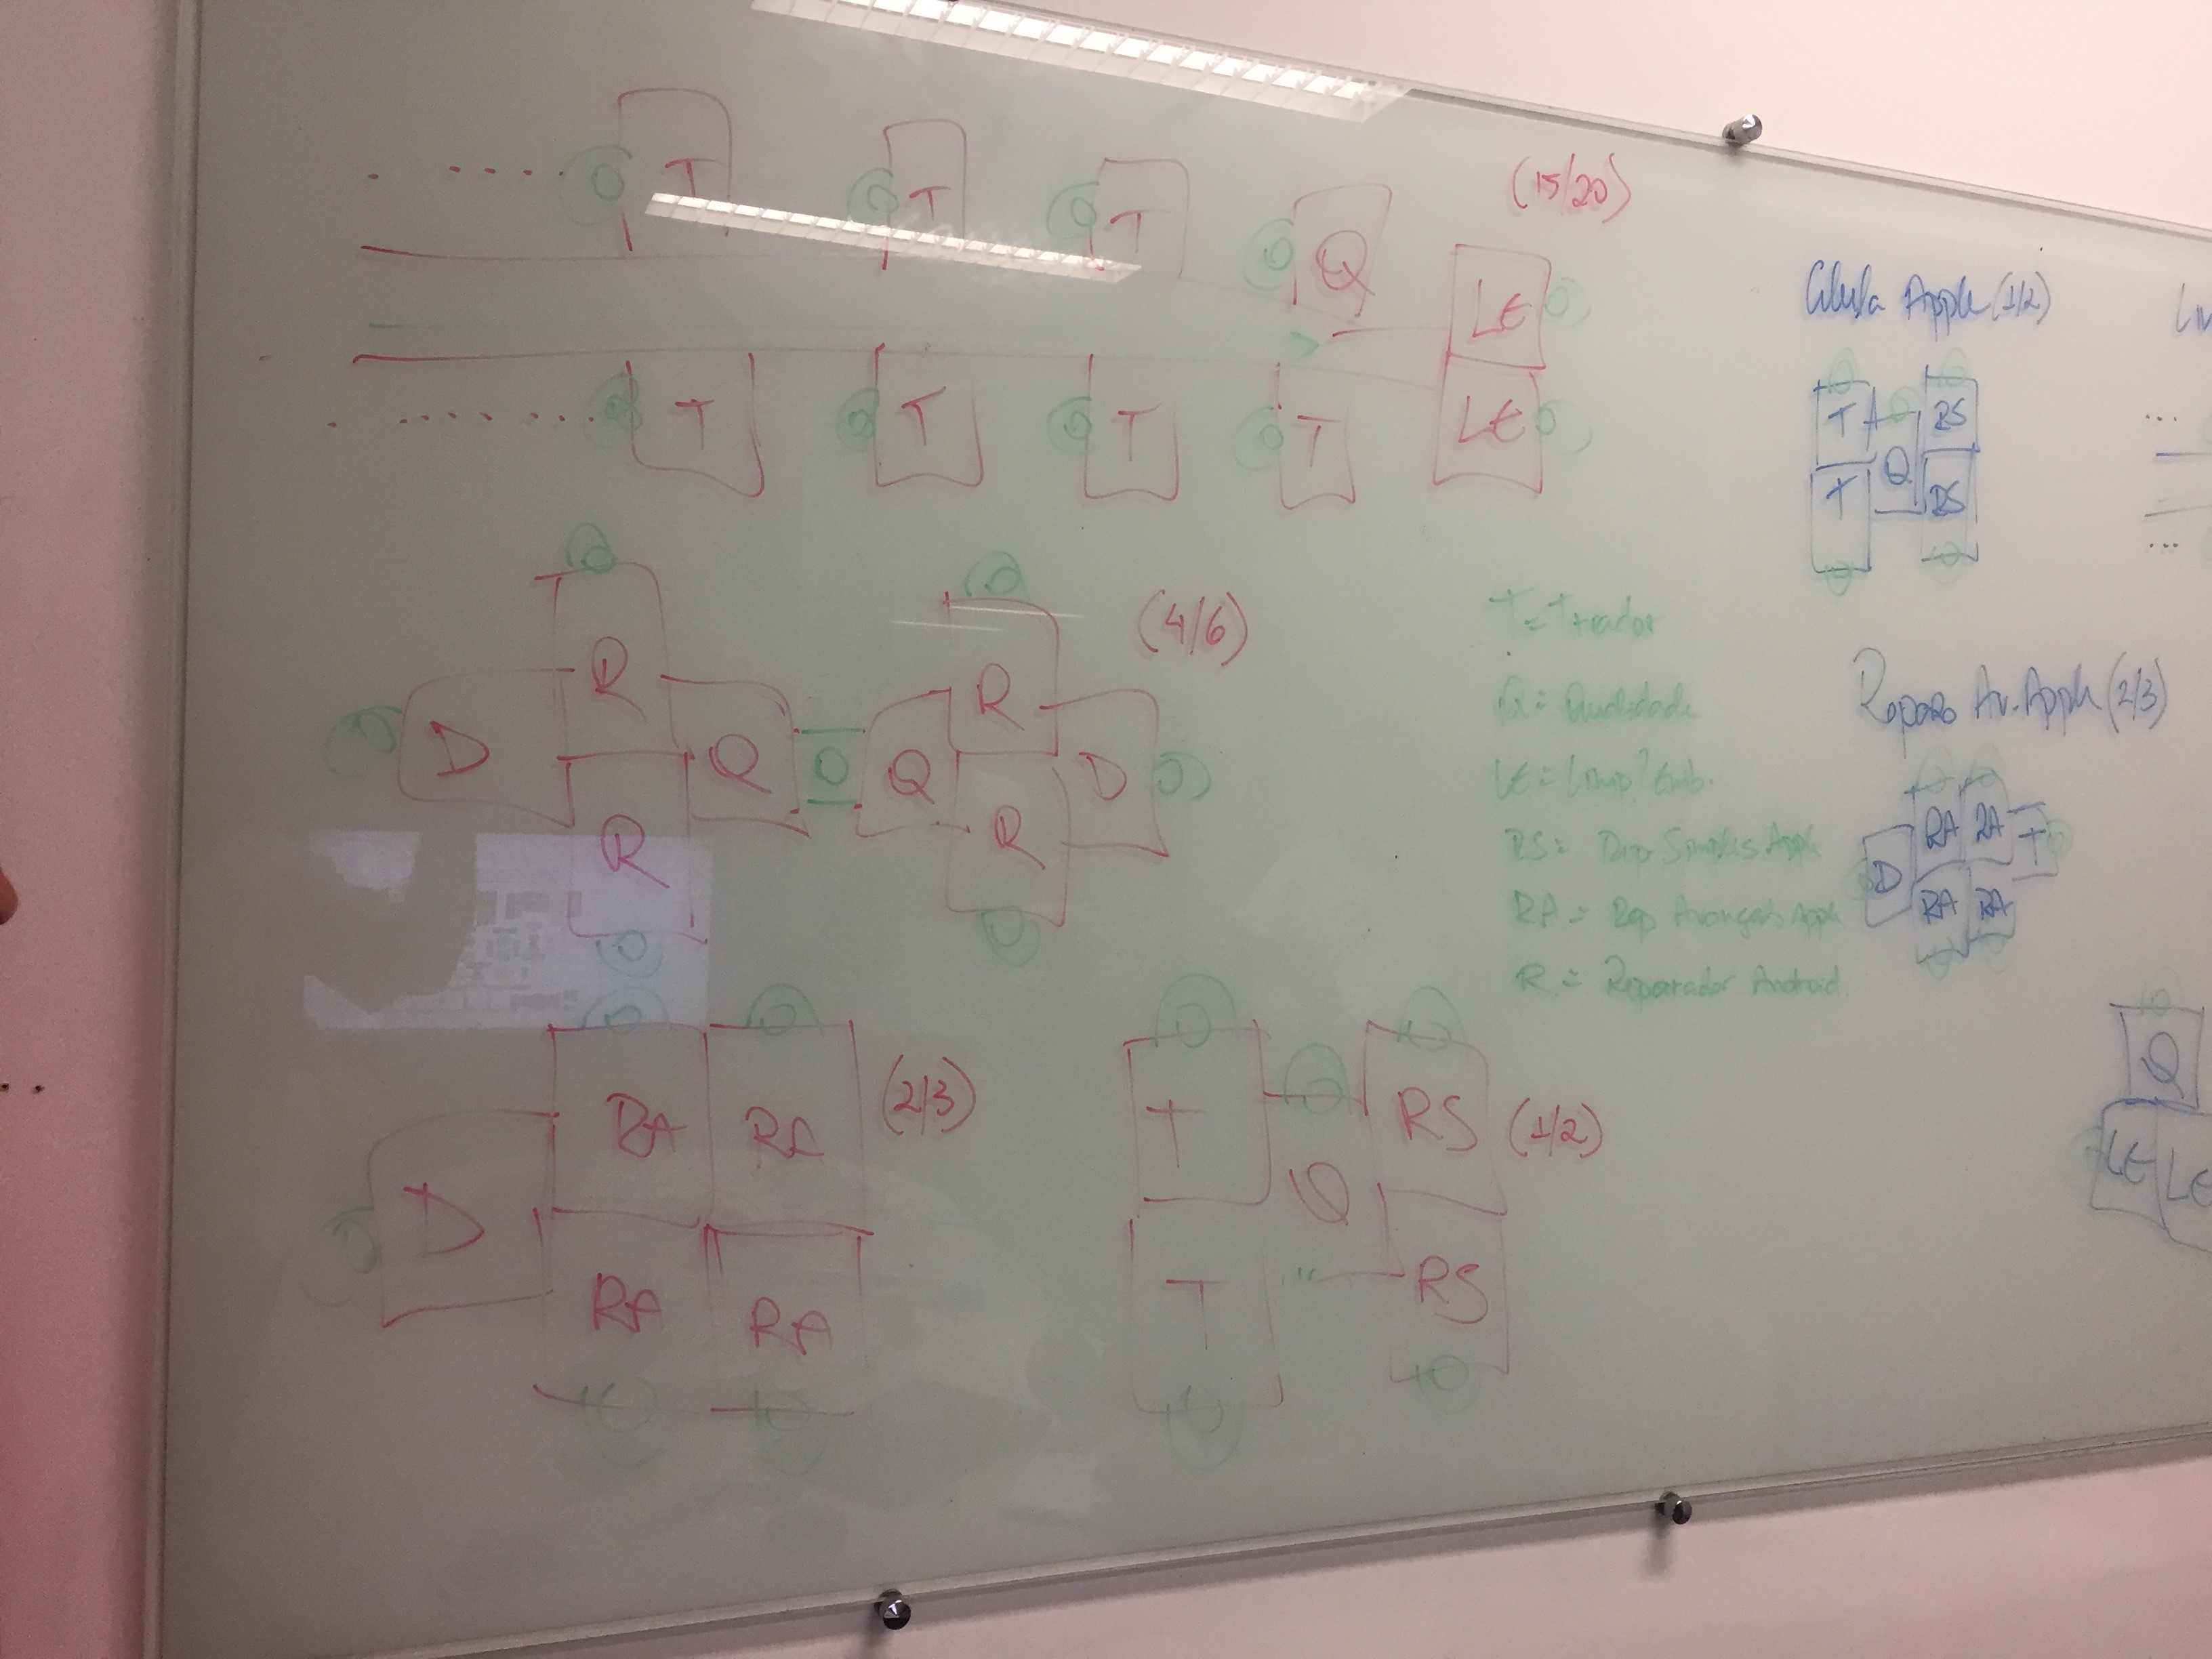 T T T Q (15/20)
LE
T T T T LE
R R (4/6)
D Q Q D
R R
RA RA (2/3)
D
RA RA
T RS (1/2)
Q
T RS
T = Triador
Q = Qualidade
LE = Limp/Emb.
RS = Rep Simples Apple
RA = Rep Avançado Apple
R = Reparador Android
Célula Apple (1/2)
T RS
Q
T RS
Reparo Av. Apple (2/3)
RA RA T
D
RA RA
Q
LE LE